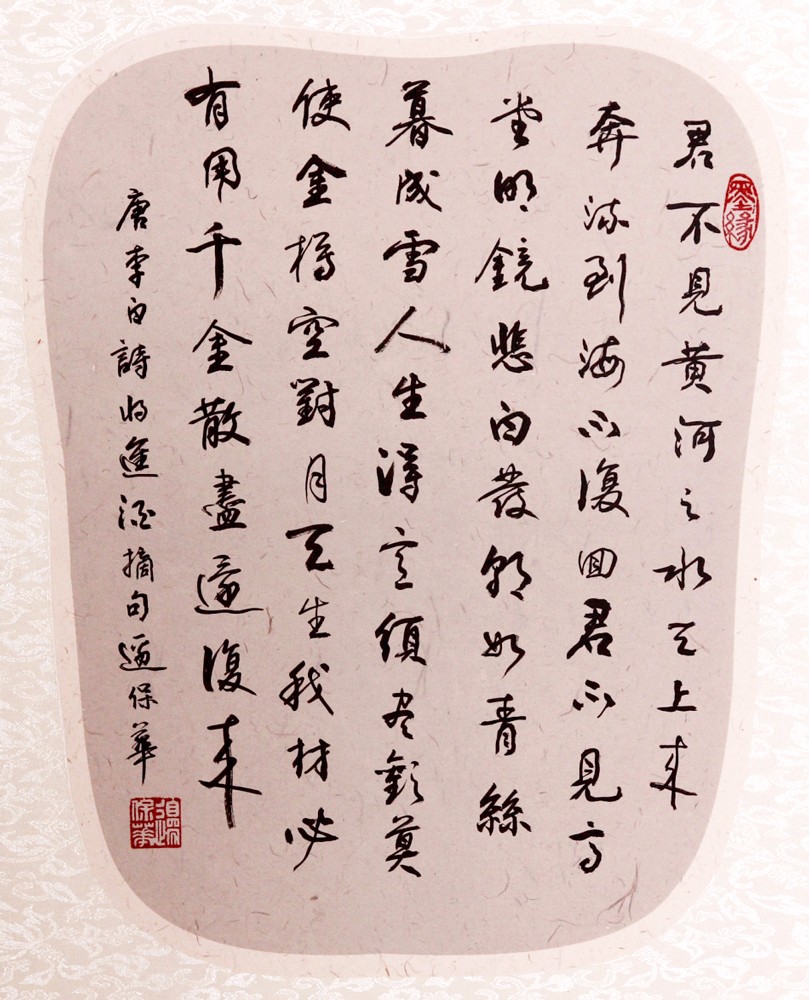 墨緣
君不見黄河之水天上来
奔流到海不復回君不見高
堂明鏡悲白發朝如青絲
暮成雪人生得意須尽歡莫
使金樽空對月天生我材必
有用千金散盡還復来
唐李白詩将進酒摘句保華
保華